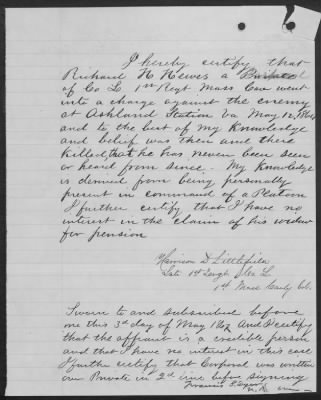 I hereby certify that
Richard H Hewes a
of Co L 1st Regt Mass Cav went
into a charge against the enemy
at Ashland Station Va May 12,
and to the best of my knowledge
and belief was then and there
killed, that he has never been seen
or heard from since. My knowledge
is derived from being personally
present in command of a Platoon
I further certify that I have no
interest in the claim of his widow
for pension
Harrison D Littlefield
Late 1st Sergt Co L
1st Mass Cavly
Sworn to and subscribed before
me this 3d day of May and I certify
that the affiant is a credible person
and that I have no interest in this case
I further certify that Corporal was written
over Private in 2d line before signing
Francis S.